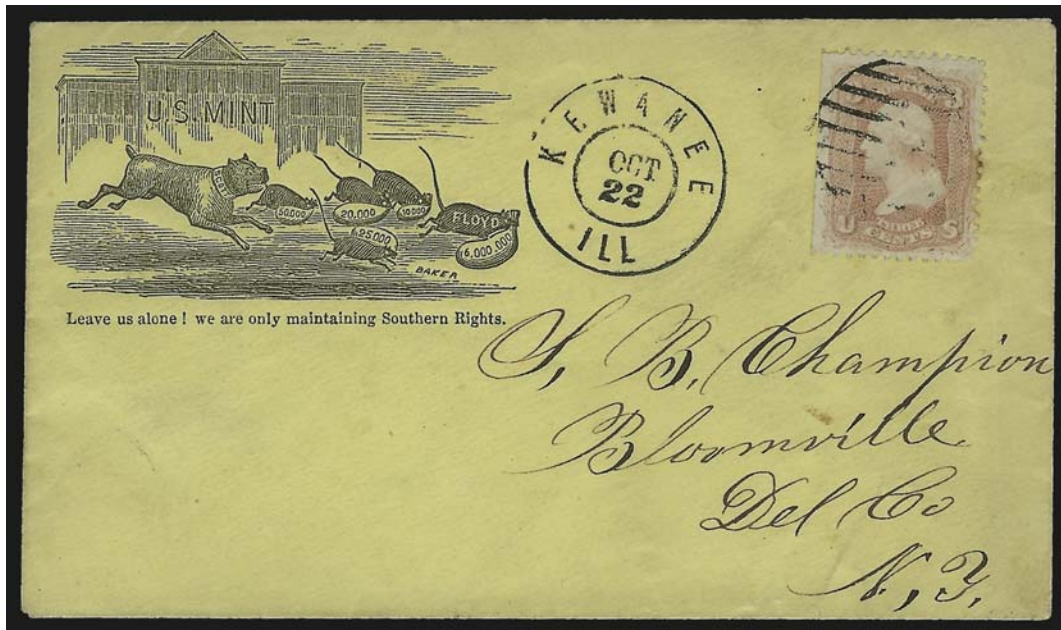 U.S. MINT
SCOTT
50.000
20.000
10.000
FLOYD
25000
6,000.000
BAKER
Leave us alone ! we are only maintaining Southern Rights.
KEWANEE
OCT
22
ILL
U S
CENTS
S, B, Champion
Bloomville
Del Co
N, Y,